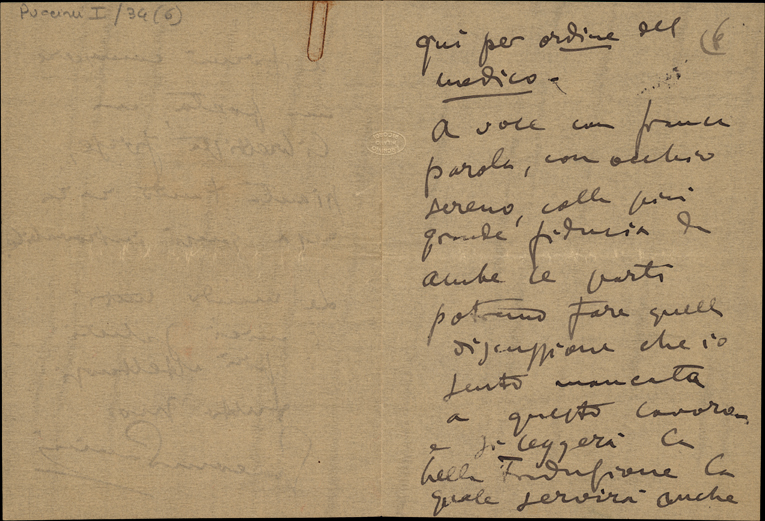 Puccini I/34(6)
6
qui per ordine del
medico -
A voce con franca
parola, con occhio
sereno, colla più
grande fiducia da
ambe le parti
potremo fare quella
discussione che io
sento mancata
a questo lavoro
e si leggerà la
bella Traduzione la
quale servirà anche